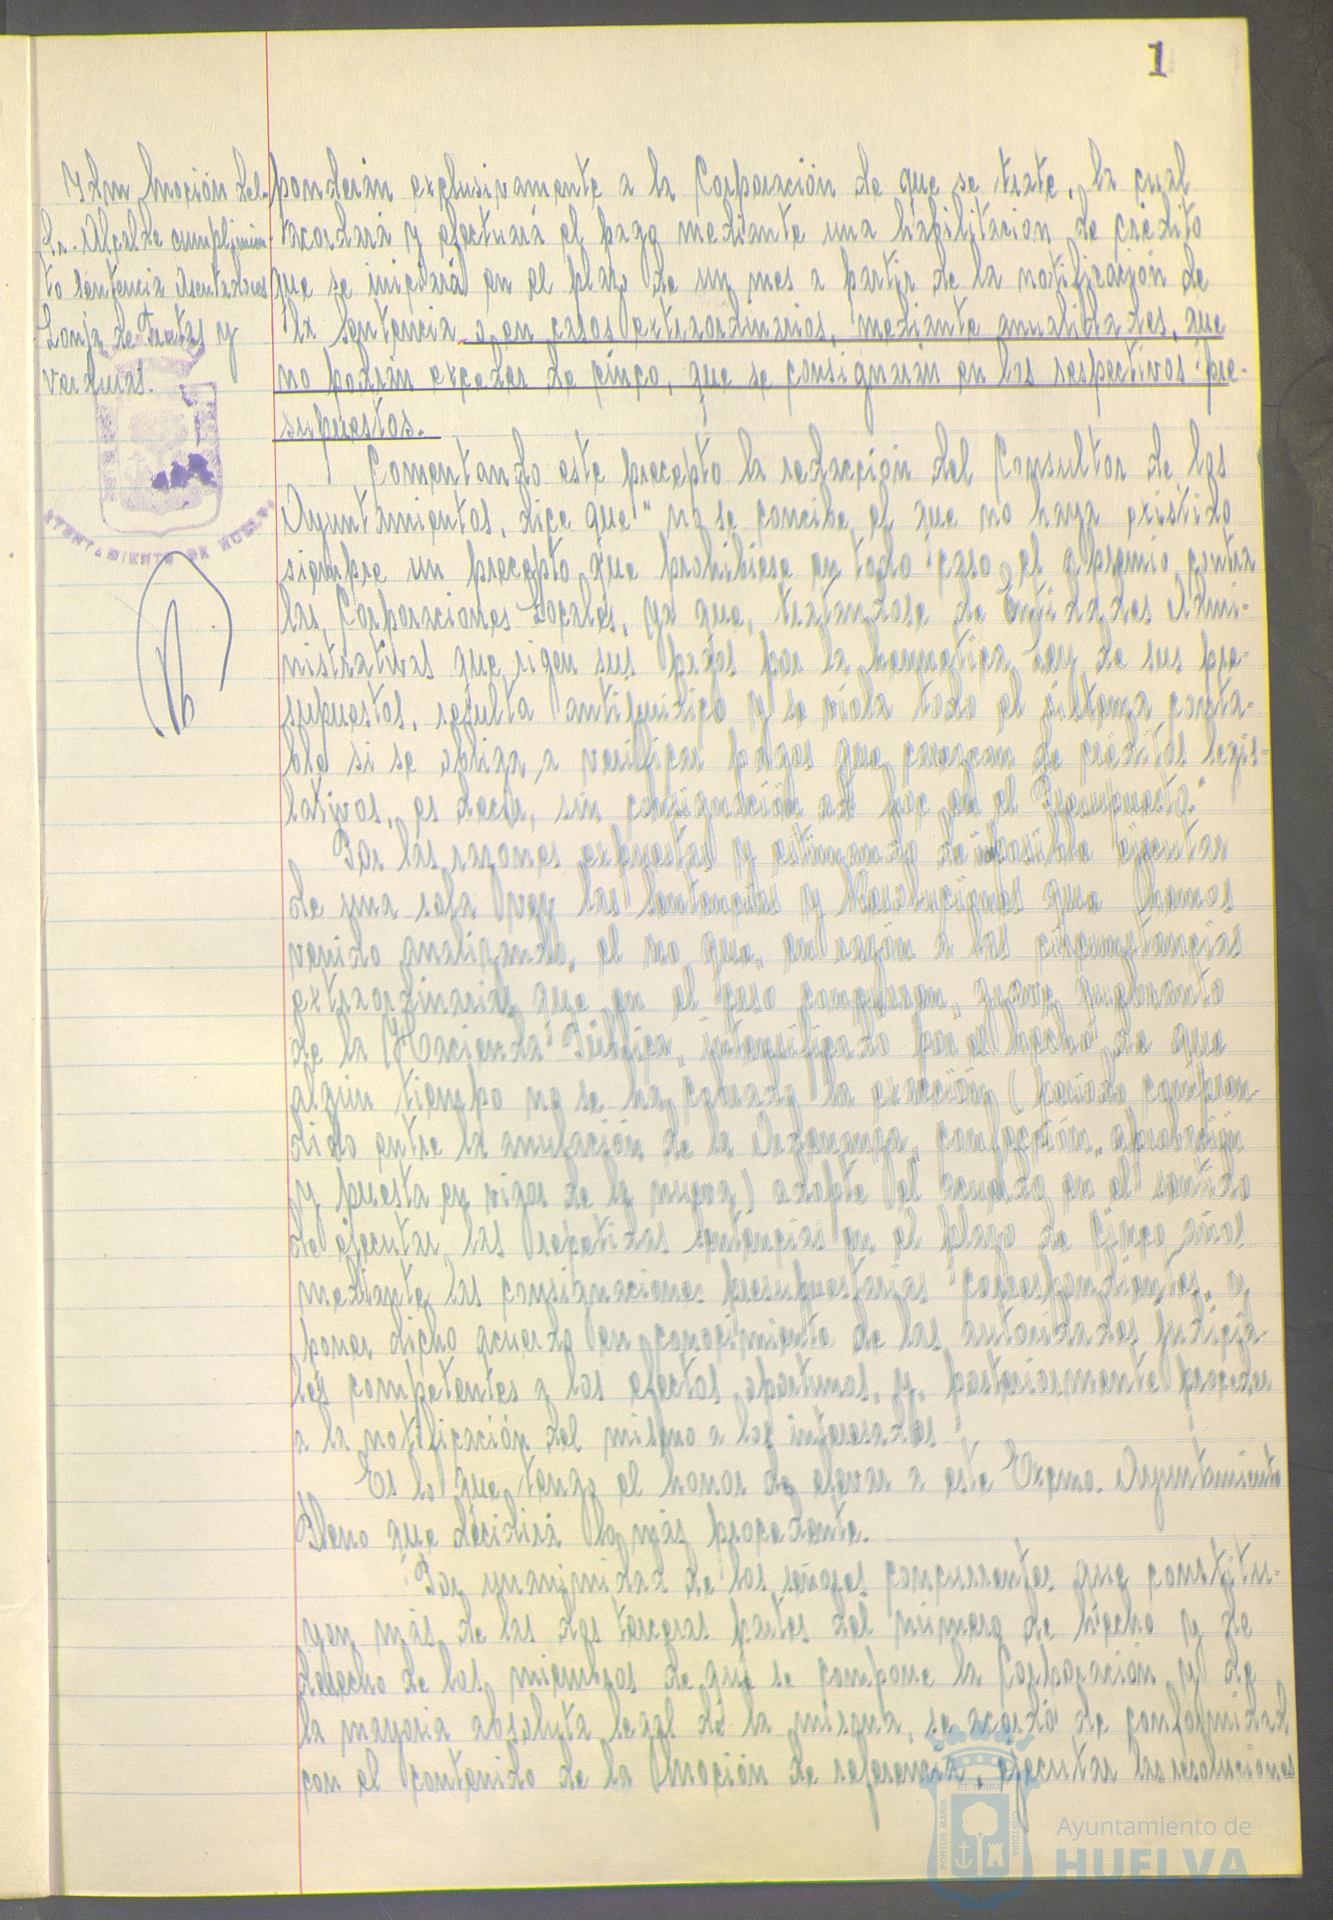 1
Idm Moción del
Sr. Alcalde cumplimien-
to sentencia Asentadores
Lonja de Frutas y
Verduras.
AYUNTAMIENTO DE HUELVA
ponderán exclusivamente a la Corporación de que se trate, la cual
acordará y efectuará el pago mediante una habilitación de crédito
que se iniciará en el plazo de un mes a partir de la notificación de
la sentencia o en casos extraordinarios, mediante anualidades, que
no podrán exceder de cinco, que se consignarán en los respectivos pre-
supuestos.
Comentando este precepto la redacción del Consultor de los
Ayuntamientos, dice que "no se concibe el que no haya existido
siempre un precepto que prohibiese en todo caso el apremio contra
las Corporaciones Locales, ya que, tratandose de Entidades Admi-
nistrativas que rigen sus pagos por la hermetica ley de sus pre-
supuestos, resulta antijuridico y se viola todo el sistema conta-
ble si se obliga a verificar pagos que carezcan de créditos legis-
lativos, es decir, sin consignación ad hoc en el Presupuesto."
Por las razones expuestas y estimando de imposible ejecutar
de una sola vez las Sentencias y Resoluciones que hemos
venido analizando, el no que, en razón a las circunstancias
extraordinarias que en el caso concurren, grave quebranto
de la Hacienda Pública, intensificado por el hecho de que
algún tiempo no se ha cobrado la exacción (periodo compren-
dido entre la anulación de la Ordenanza, confección, aprobación
y puesta en vigor de la nueva) adopte el acuerdo en el sentido
de ejecutar las repetidas sentencias en el plazo de cinco años
mediante las consignaciones presupuestarias correspondientes, y
poner dicho acuerdo en conocimiento de las autoridades judicia-
les competentes a los efectos oportunos, y posteriormente proceder
a la notificación del mismo a los interesados.
Es lo que tengo el honor de elevar a este Excmo. Ayuntamiento
Pleno que decidirá lo más procedente.
Por unanimidad de los señores concurrentes que constitu-
yen más de las dos terceras partes del número de hecho y de
derecho de los miembros de que se compone la Corporación y de
la mayoria absoluta legal de la misma, se acordó de conformidad
con el contenido de la Moción de referencia, ejecutar las resoluciones
PORTUS MARIS
ET TERRAE
CUSTODIA
Ayuntamiento de
HUELVA